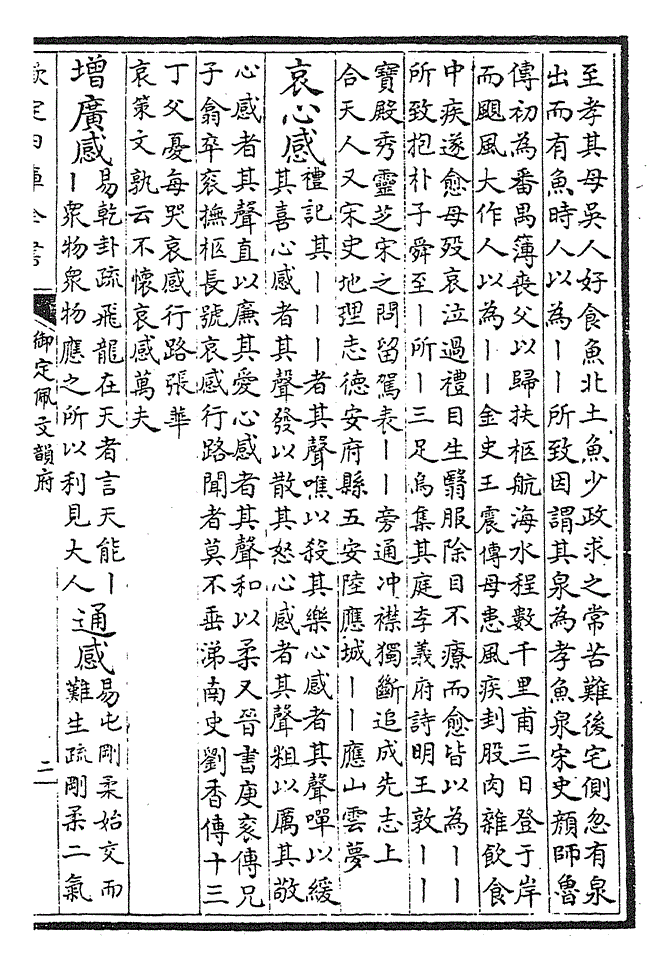 至孝其母吳人好食魚北土魚少政求之常苦難後宅側忽有泉
出而有魚時人以為丨丨所致因謂其泉為孝魚泉宋史顔師魯
傳初為番禺薄喪父以歸扶柩航海水程數千里甫三日登于岸
而颶風大作人以為丨丨金史王震傳母患風疾刲股肉雜飲食
中疾遂愈母殁哀泣過禮目生翳服除目不療而愈皆以為丨丨
所致抱朴子舜至丨所丨三足烏集其庭李義府詩明王敦丨丨
寶殿秀靈芝宋之問留駕表丨丨旁通冲襟獨斷追成先志上
合天人又宋史地理志德安府縣五安陸應城丨丨應山雲夢
哀心感
禮記其丨丨丨者其聲噍以殺其樂心感者其聲嘽以緩
其喜心感者其聲發以散其怒心感者其聲粗以厲其敬
心感者其聲直以廉其愛心感者其聲和以柔又晉書庾衮傳兄
子翕卒衮撫柩長號哀感行路聞者莫不垂涕南史劉香傳十三
丁父憂每哭哀感行路張華
哀策文孰云不懷哀感萬夫
增廣感
易乾卦疏飛龍在天者言天能丨
丨衆物衆物應之所以利見大人
通感
易屯剛柔始交而
難生疏剛柔二氣
欽定四庫全書
御定佩文韻府
二